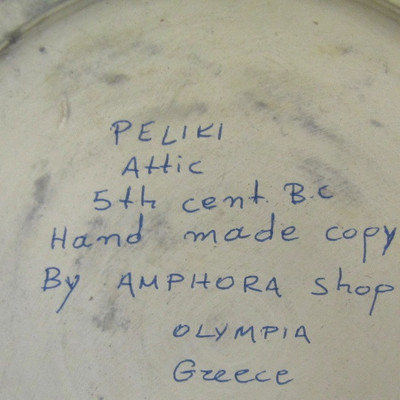 PELIKI
Attic
5th cent. B.c
Hand made copy
By AMPHORA shop
OLYMPIA
Greece